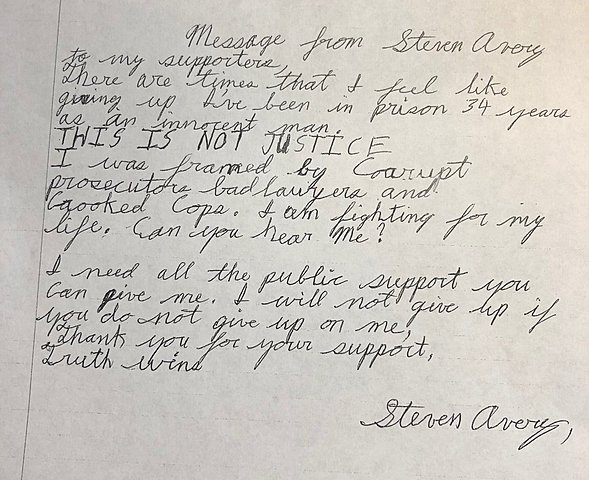 Message from Steven Avery
to my supporters,
There are times that I feel like
giving up I've been in prison 34 years
as an innocent man.
THIS IS NOT JUSTICE
I was framed by Corrupt
prosecutors bad lawyers and
Crooked Cops. I am fighting for my
life. Can you hear Me?
I need all the public support you
Can give me. I will not give up if
you do not give up on me,
Thank you for your support,
Truth wins
Steven Avery,